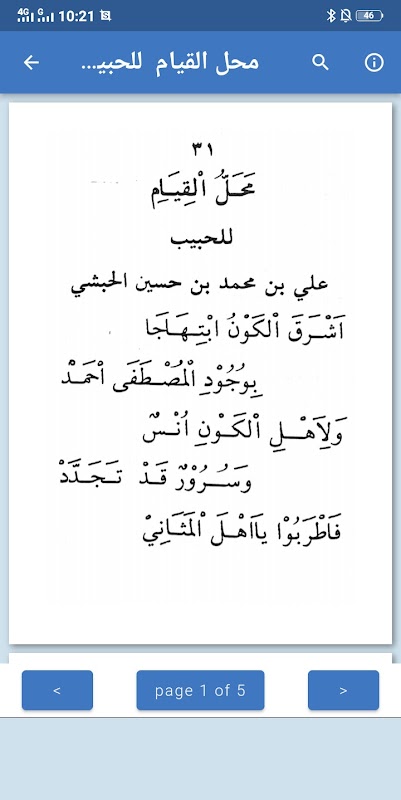 4G G 10:21 46
محل القيام للحبيـ...
٣١
مَحَلُّ الْقِيَامِ
للحبيب
علي بن محمد بن حسين الحبشي
اَشْرَقَ الْكَوْنُ ابْتِهَاجَا
بِوُجُوْدِ الْمُصْطَفَى اَحْمَدْ
وَلِاَهْلِ الْكَوْنِ اُنْسٌ
وَسُرُوْرٌ قَدْ تَجَدَّدْ
فَاطْرَبُوْا يَااَهْلَ الْمَثَانِيْ
< page 1 of 5 >